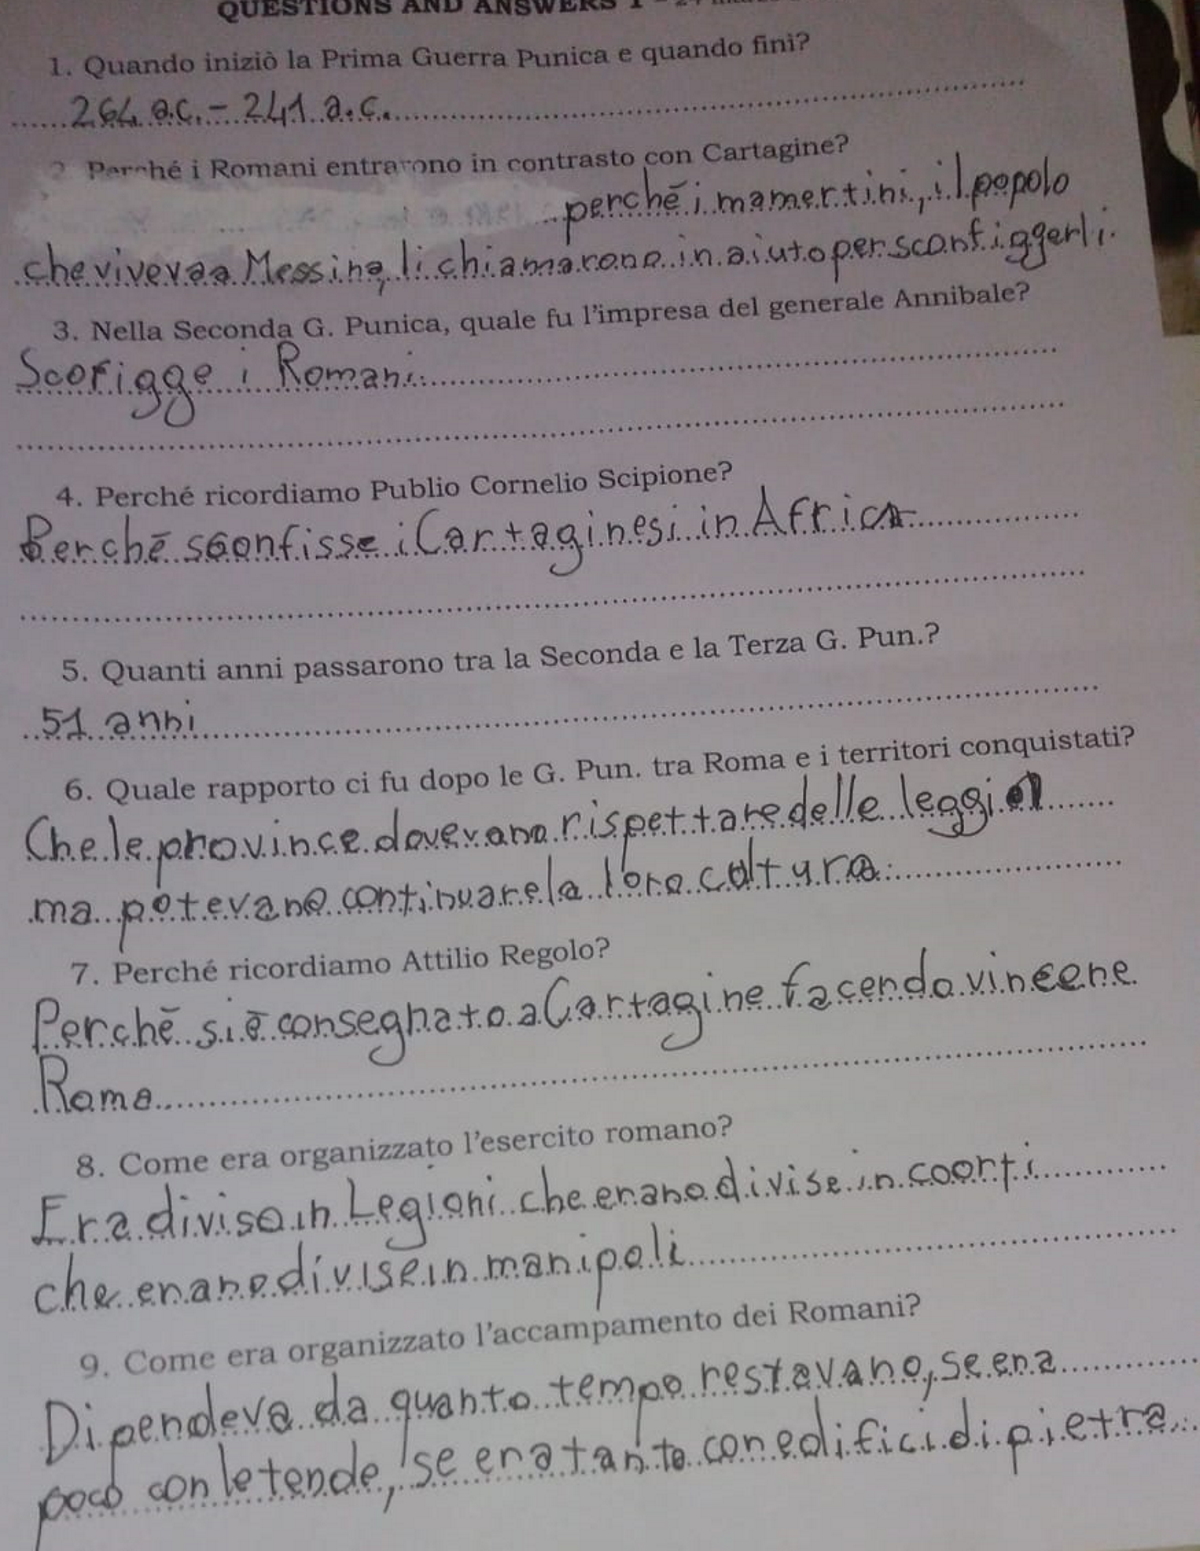 QUESTIONS AND ANSWERS 1 - 24
1. Quando iniziò la Prima Guerra Punica e quando finì?
264 a.c. - 241 a.c.
2. Perché i Romani entrarono in contrasto con Cartagine?
perché i mamertini, il popolo
che viveva a Messina, li chiamarono in aiuto per sconfiggerli.
3. Nella Seconda G. Punica, quale fu l'impresa del generale Annibale?
Scofigge i Romani.
4. Perché ricordiamo Publio Cornelio Scipione?
Perché sconfisse i Cartaginesi in Africa
5. Quanti anni passarono tra la Seconda e la Terza G. Pun.?
51 anni
6. Quale rapporto ci fu dopo le G. Pun. tra Roma e i territori conquistati?
Che le province dovevano rispettare delle leggi
ma potevano continuare la loro coltura.
7. Perché ricordiamo Attilio Regolo?
Perché si è consegnato a Cartagine facendo vincere
Roma
8. Come era organizzato l'esercito romano?
Era diviso in Legioni che erano divise in coorti
che erano divise in manipoli
9. Come era organizzato l'accampamento dei Romani?
Dipendeva da quanto tempo restavano, se era
poco con le tende, se era tanto con edifici di pietra